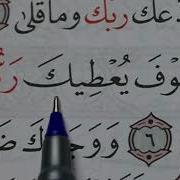 دَّعَكَ رَبُّكَ وَمَا قَلَىٰ
وْفَ يُعْطِيكَ رَبُّ
٦ وَوَجَدَكَ